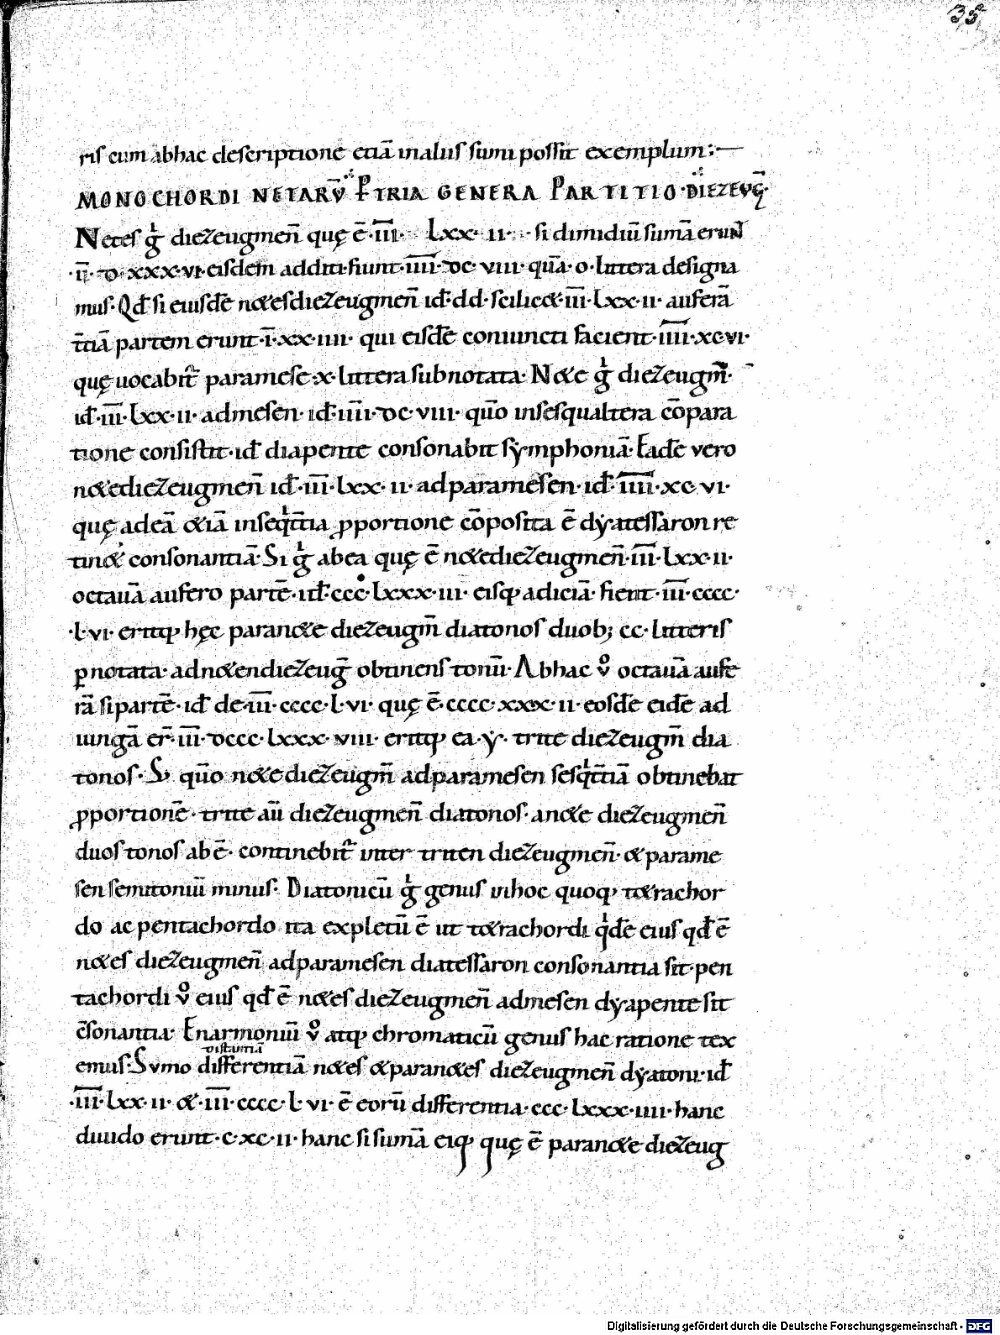 35
ris cum abhac descriptione etiā inaliis sumi possit exemplum:—
MONOCHORDI NETARV̄ P̄TRIA GENERA PARTITIO·DIEZEVḠ·
Netes g̍ diezeugmen̄ quę ē·īīī· Lxx·ii· si dimidiū sumā erun̄
·īī· xxx·vi·eisdem additi·fiunt·īīīī·dc·viii·quā·o·littera designa
mus·Qđ si eiusdē n&esdiezeugmen̄ iđ·dd·scilic&·īīī·lxx·ii·auferā
t̄tiā partem erunt·ī·xx·iiii· qui eisdē coniuncti facient·īīīī·xc·vi·
quę uocabit̄ paramese·x·littera subnotata·N&e g̍ diezeugm̄·
iđ·īīī·lxx·ii·admesen·iđ·īīīī·dc·viii·quō insesqualtera cōpara
tione consistit·iđ diapente consonabit symphoniā·Eadē vero
n&ediezeugmen̄ iđ·īīī·lxx·ii·adparamesen·iđ·īīīī·xc·vi·
quę adeā &iā inseq̍t̄tia ꝓportione cōposita ē dyatessaron re
tin& consonantiā·Si g̍ abea quę ē n&ediezeugmen̄·īīī·lxx·ii·
octauā aufero partē·iđ·ccc·lxxx·iiii·eisq; adiciā·fient·īīī·cccc·
·l·vi·eritq; hęc paran&e diezeugm̄ diatonos duob; cc·litteris
ꝑnotata·adn&endiezeuḡ obtinens tonū·Abhac v̊ octauā aufe
rā siipartē·iđ de·īīī·cccc·l·vi·quę ē·cccc·xxx·ii·eosdē eidē ad
iungā er̄·īīī·dccc·lxxx·viii·eritq; ea·y·trite diezeugm̄ dia
tonos· quō n&ediezeugm̄ adparamesen sesq̍t̄tiā obtinebat
ꝓportionē·trite aū diezeugmen̄ diatonos·an&e diezeugmen̄
duos tonos ab ē·continebit̄ inter triten diezeugmen̄·&parame
sen semitoniū minus·Diatonicū g̍ genus inhoc quoq; t&rachor
do ac pentachordo ita expletū ē ut t&rachordi q̍dē eius qđ ē
n&es diezeugmen̄ adparamesen diatessaron consonantia sit·pen
tachordi v̊ eius qđ ē n&es diezeugmen̄ admesen dyapente sit
c̄sonantia·Enarmoniū v̊ atq; chromaticū genus hac ratione tex
emus:Sumo differentiā n&es &paran&es diezeugmen̄ dyatoni·iđ
·īīī·lxx·ii·&·īīī·cccc·l·vi·ē eorū differentia·ccc·lxxx·iiii·hanc
diuido erunt·c·xc·ii·hanc si sumā eiq; quę ē paran&e diezeug
Digitalisierung gefördert durch die Deutsche Forschungsgemeinschaft - DFG